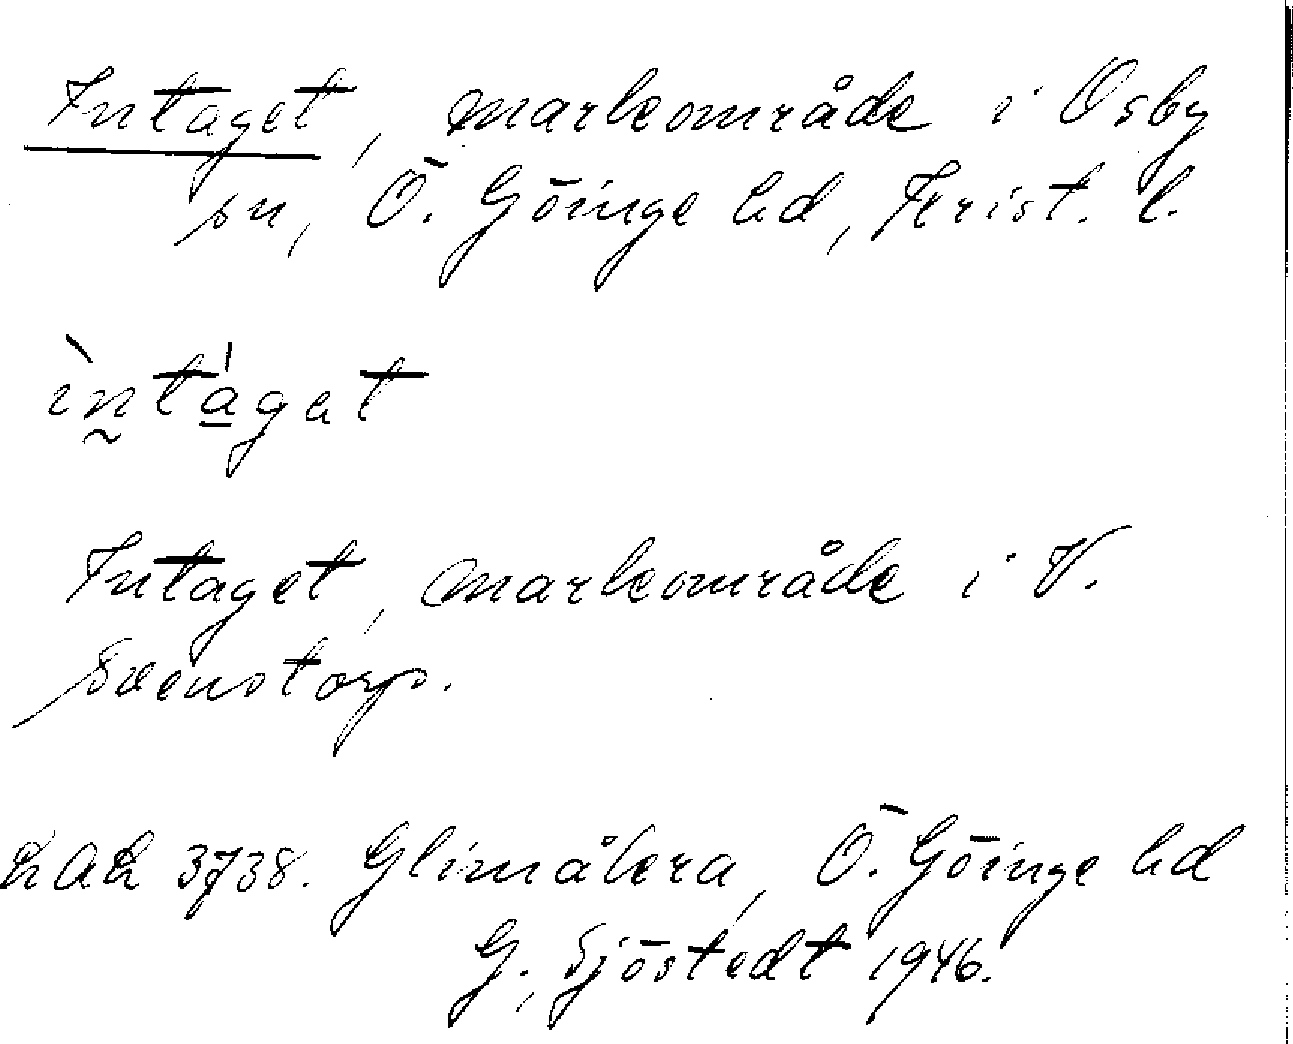 Intaget, markområde i Osby
sn, Ö. Göinge hd, Krist. l.
ìntáget
Intaget, markområde i V.
Svenstorp.
LAL 3738. Glimåkra, Ö. Göinge hd
G. Sjöstedt 1946.